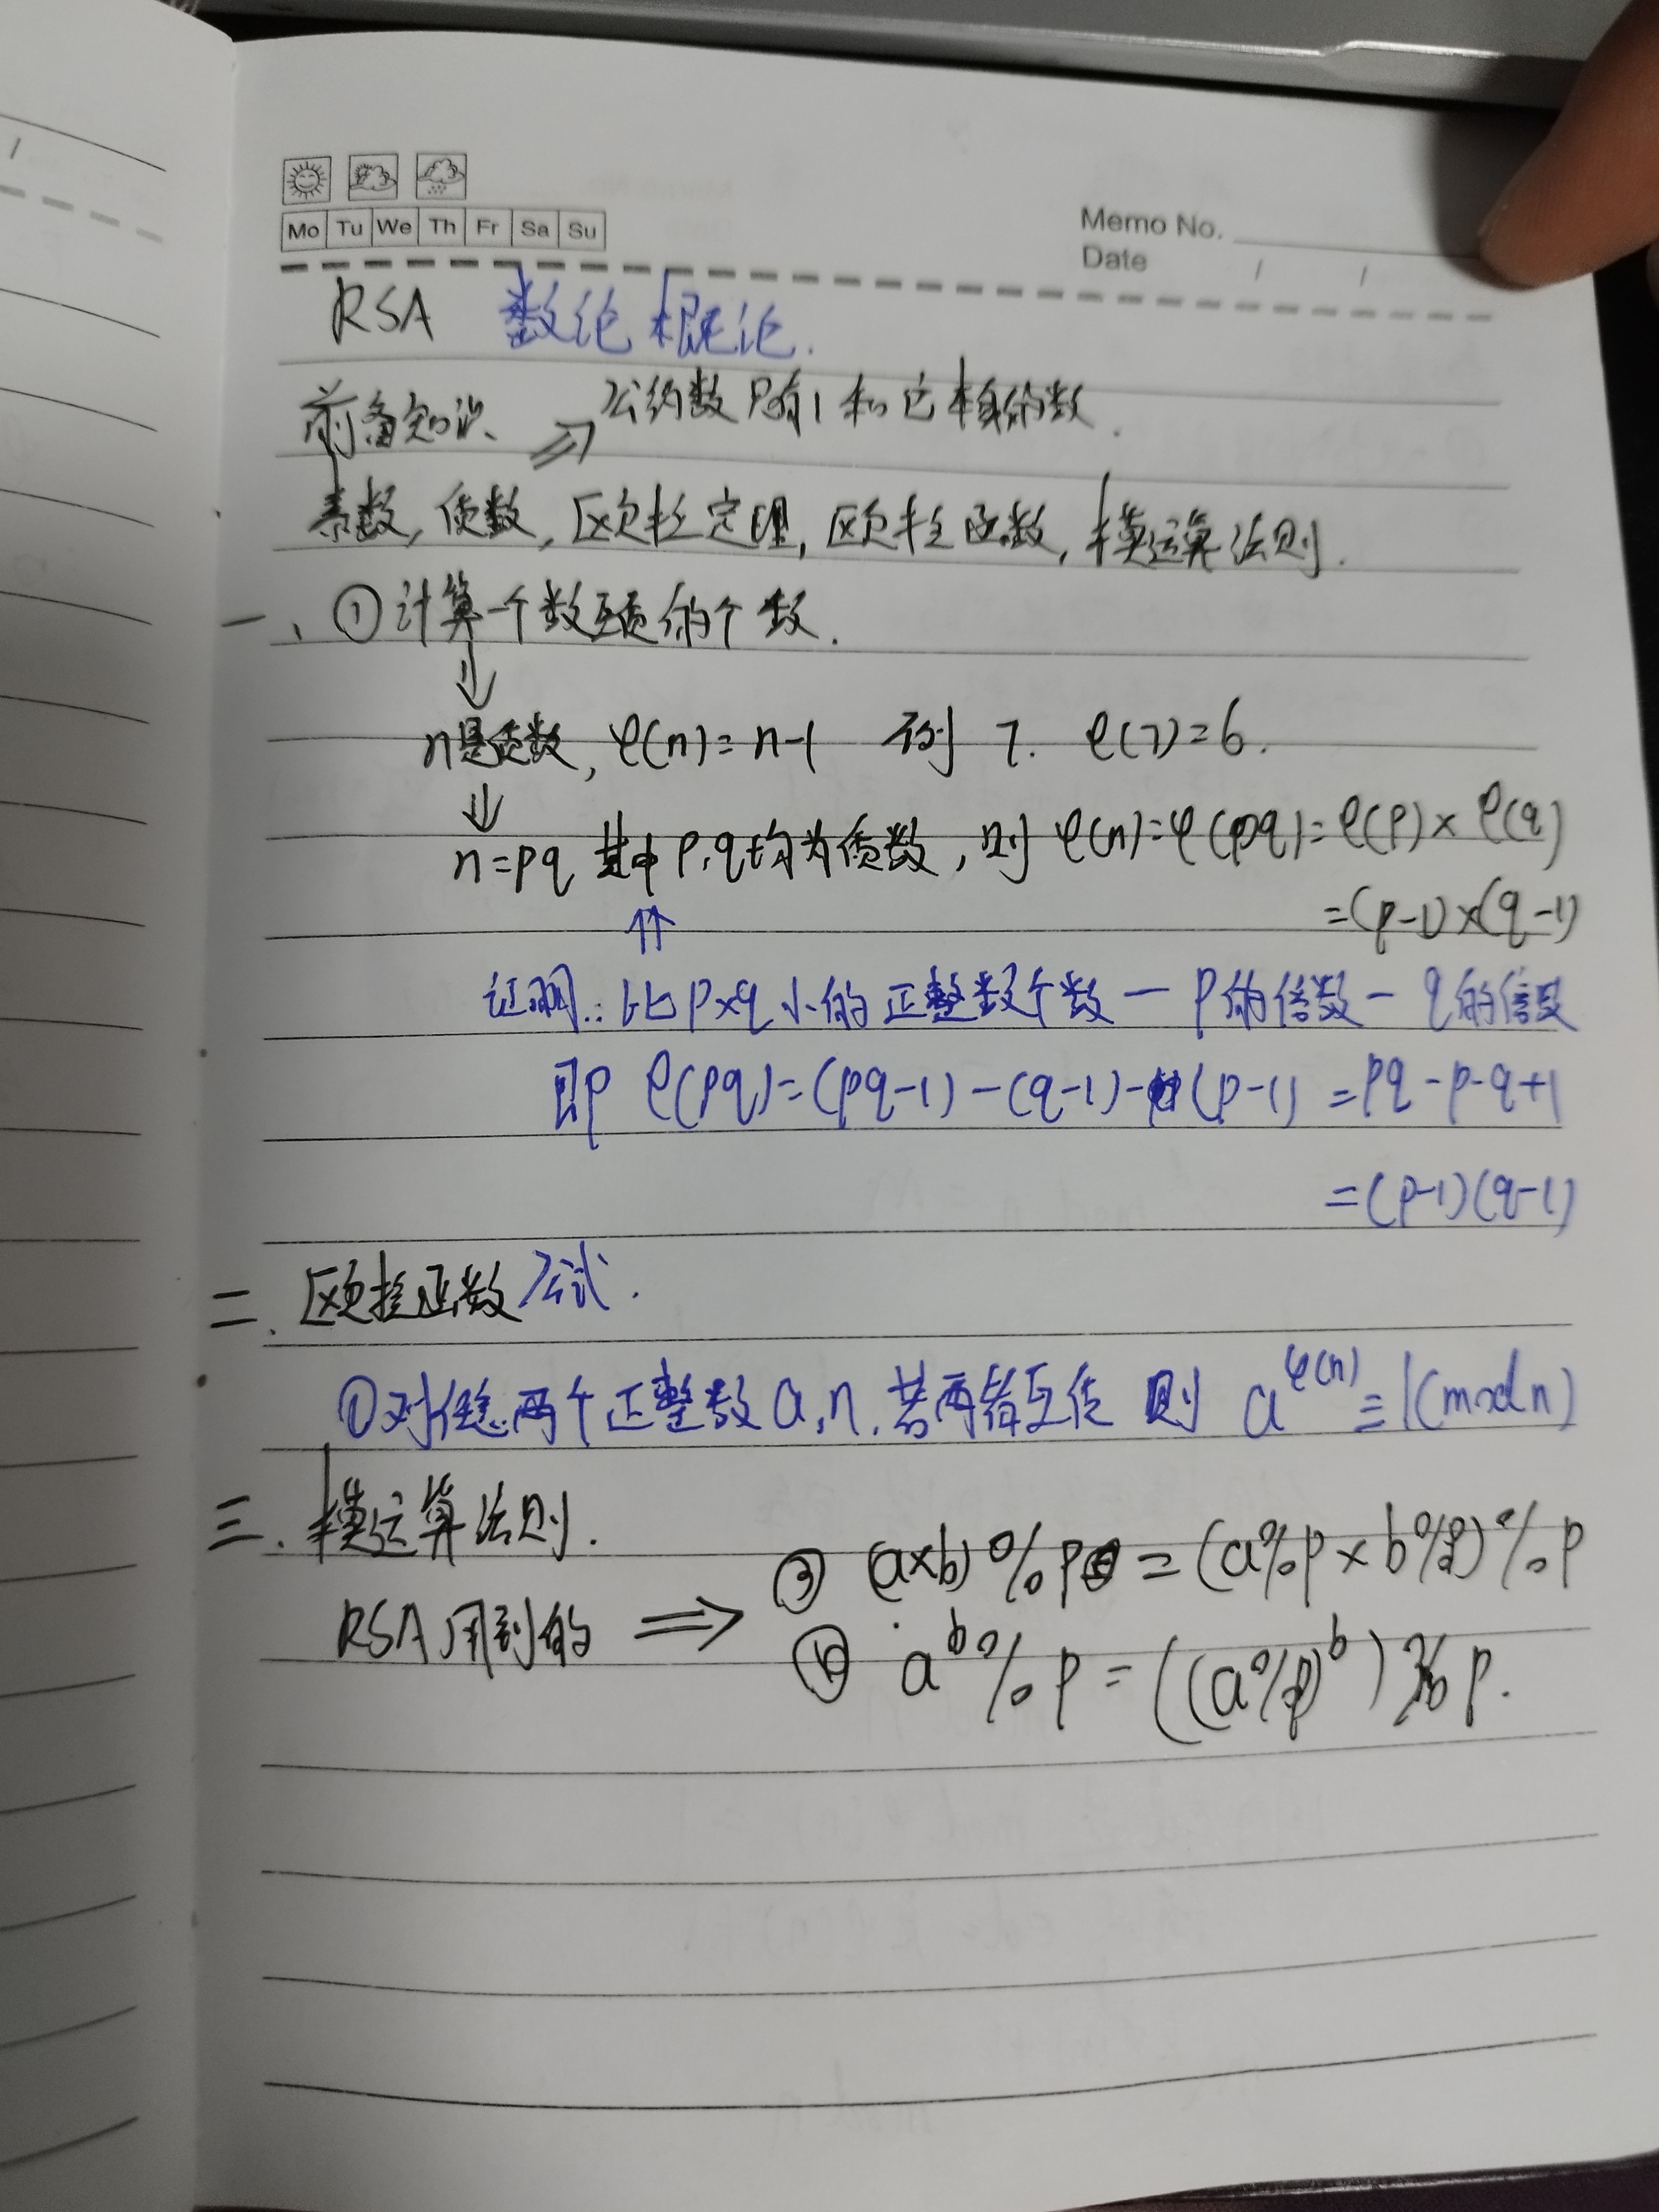 Mo Tu We Th Fr Sa Su
Memo No.
Date / /
RSA 数论概论.
前备知识 ⇒ 公约数只有1和它本身的数.
素数, 质数, 欧拉定理, 欧拉函数, 模运算法则.
一、①计算一个数互质的个数.
↓
n是质数, φ(n)=n-1 例 7. φ(7)=6.
↓
n=pq 其中p,q均为质数, 则 φ(n)=φ(pq)=φ(p)×φ(q)
=(p-1)×(q-1)
⇈
证明: 比p×q小的正整数个数 - p的倍数 - q的倍数
即 φ(pq)=(pq-1)-(q-1)-(p-1)=pq-p-q+1
=(p-1)(q-1)
二. 欧拉函数公试.
①对任意两个正整数a,n.若两者互质 则 a^φ(n)≡1(mod n)
三. 模运算法则.
③ (a×b)%p=(a%p×b%p)%p
RSA用到的 ⇒
a^b%p=((a%p)^b)%p.